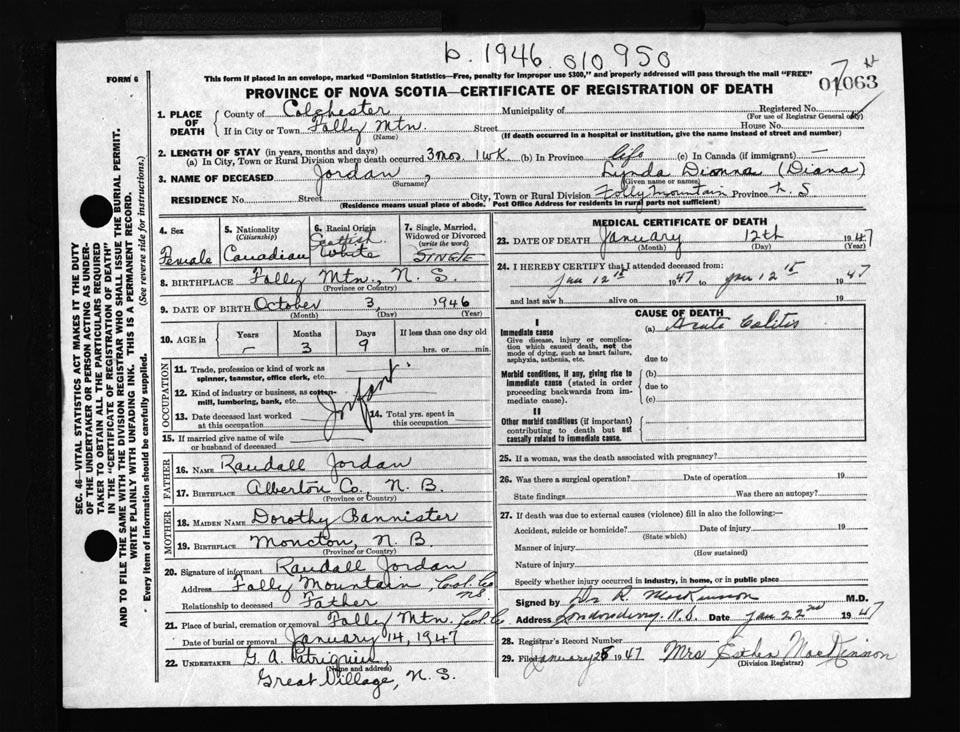 b. 1946. 010950
7
FORM 6
This form if placed in an envelope, marked "Dominion Statistics—Free, penalty for improper use $300," and properly addressed will pass through the mail "FREE"
01063
PROVINCE OF NOVA SCOTIA—CERTIFICATE OF REGISTRATION OF DEATH
1. PLACE OF DEATH
County of Colchester Municipality of Registered No.
(For use of Registrar General only)
If in City or Town Folly Mtn. Street House No.
(Name) (If death occurred in a hospital or institution, give the name instead of street and number)
2. LENGTH OF STAY (in years, months and days)
(a) In City, Town or Rural Division where death occurred 3 mos. 1 wk. (b) In Province life (c) In Canada (if immigrant) —
3. NAME OF DECEASED Jordan, Lynda Dianna (Diana)
(Surname) (Given name or names)
RESIDENCE No. Street City, Town or Rural Division Folly Mountain Province N.S
(Residence means usual place of abode. Post Office Address for residents in rural parts not sufficient)
4. Sex
Female
5. Nationality
(Citizenship)
Canadian
6. Racial Origin
Scottish
White
7. Single, Married, Widowed or Divorced
(write the word)
SINGLE
8. BIRTHPLACE Folly Mtn., N. S.
(Province or Country)
9. DATE OF BIRTH October 3, 1946
(Month) (Day) (Year)
10. AGE in
Years Months Days If less than one day old
— 3 9 hrs. or min.
OCCUPATION
11. Trade, profession or kind of work as
spinner, teamster, office clerk, etc.
12. Kind of industry or business, as cotton-
mill, lumbering, bank, etc.
Infant
13. Date deceased last worked
at this occupation
14. Total yrs. spent in
this occupation
15. If married give name of wife
or husband of deceased
FATHER
16. NAME Randall Jordan
17. BIRTHPLACE Alberton Co. N. B.
(Province or Country)
MOTHER
18. MAIDEN NAME Dorothy Bannister
19. BIRTHPLACE Moncton, N. B.
(Province or Country)
20. Signature of informant Randall Jordan
Address Folly Mountain, Col. Co
NS
Relationship to deceased Father
21. Place of burial, cremation or removal Folly Mtn. Col. Co
Date of burial or removal January 14, 1947
22. UNDERTAKER G. A. Patriquin,
(Name and address)
Great Village, N. S.
MEDICAL CERTIFICATE OF DEATH
23. DATE OF DEATH January 12th 1947
(Month) (Day) (Year)
24. I HEREBY CERTIFY that I attended deceased from:
Jan 12th 1947 to Jan 12th 1947
and last saw h alive on 19
CAUSE OF DEATH
I
Immediate cause
Give disease, injury or complica-
tion which caused death, not the
mode of dying, such as heart failure,
asphyxia, asthenia, etc.
(a) Acute Colitis
due to
Morbid conditions, if any, giving rise to
immediate cause (stated in order
proceeding backwards from im-
mediate cause).
(b)
due to
(c)
II
Other morbid conditions (if important)
contributing to death but not
causally related to immediate cause.
25. If a woman, was the death associated with pregnancy?
26. Was there a surgical operation? Date of operation 19
State findings Was there an autopsy?
27. If death was due to external causes (violence) fill in also the following:—
Accident, suicide or homicide? Date of injury 19
(State which)
Manner of injury
(How sustained)
Nature of injury
Specify whether injury occurred in industry, in home, or in public place
Signed by R. MacKinnon M.D.
Address Londonderry N.S. Date Jan 22nd 1947
28. Registrar's Record Number
29. Filed January 28 1947 Mrs Esther MacKinnon
(Division Registrar)
SEC. 46—VITAL STATISTICS ACT MAKES IT THE DUTY
OF THE UNDERTAKER OR PERSON ACTING AS UNDER-
TAKER TO OBTAIN ALL THE PARTICULARS REQUIRED
IN THE "CERTIFICATE OF REGISTRATION OF DEATH"
AND TO FILE THE SAME WITH THE DIVISION REGISTRAR WHO SHALL ISSUE THE BURIAL PERMIT.
WRITE PLAINLY WITH UNFADING INK. THIS IS A PERMANENT RECORD.
Every item of information should be carefully supplied. (See reverse side for instructions.)